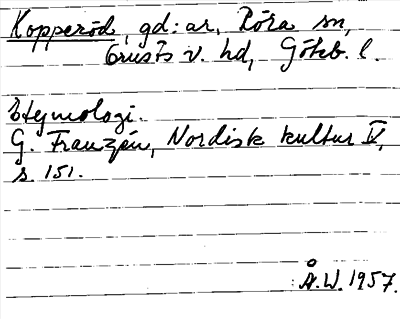 Kopperöd, gd: ar, Röra sn,
Orusts v. hd, Göteb. l.
Etymologi.
G. Franzén, Nordisk kultur V,
s. 151.
Å.W. 1957.